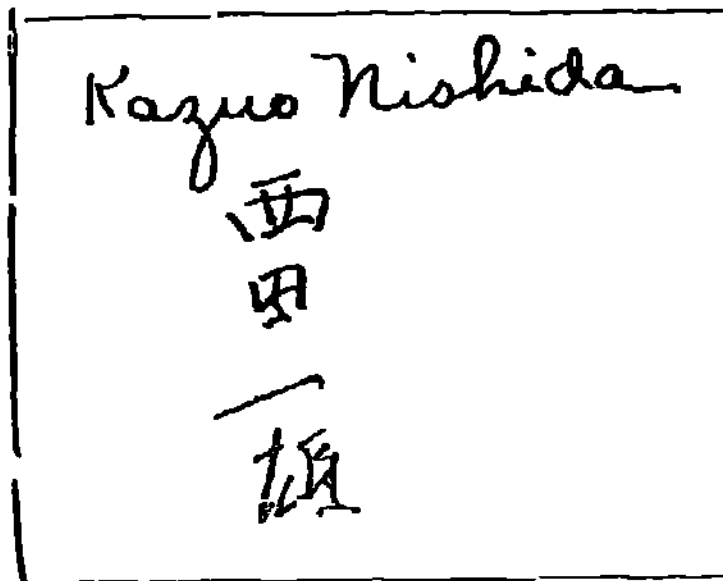 Kazuo Nishida
西田一雄